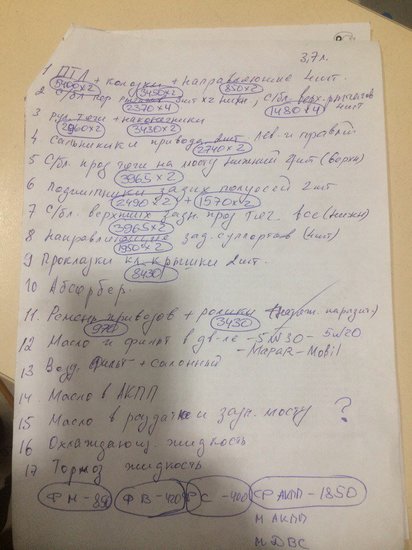 3,7 л.
1 ПТЛ + колодки + направляющие 4 шт.
5400х2 3450х2 850х2
2 С/бл пер рычагов 2шт х2 нижн, С/бл верх. рычагов 4 шт
2370х4 1480х4
3 Рул тяги + наконечники
2960х2 3430х2
4 Сальники привода 2шт лев. и правый
2740х2
5 С/бл прод тяги на мосту нижний 2шт (верхн)
3965х2
6 Подшипники задних полуосей 2 шт
2490х2 + 1570х2
7 С/бл. верхних задн. прод тяг. все (нижн)
3965х2
8 Направляющие зад. суппортов (4шт)
1950х2
9 Прокладки кл. крышки 2шт.
8430
10 Абсорбер.
11 Ремень приводов + ролики
970 3430
12 Масло и фильт в дв-ле - 5W30 - 5w20
- Марка - Mobil
13 Возд. фильт + салонный
14 Масло в АКПП
15 Масло в раздатке и задн. мосту ?
16 Охлаждающ. жидкость
17 Тормоз жидкость
Ф В - 420 С - 400 Ф АКПП - 1850
М АКПП
М ДВС